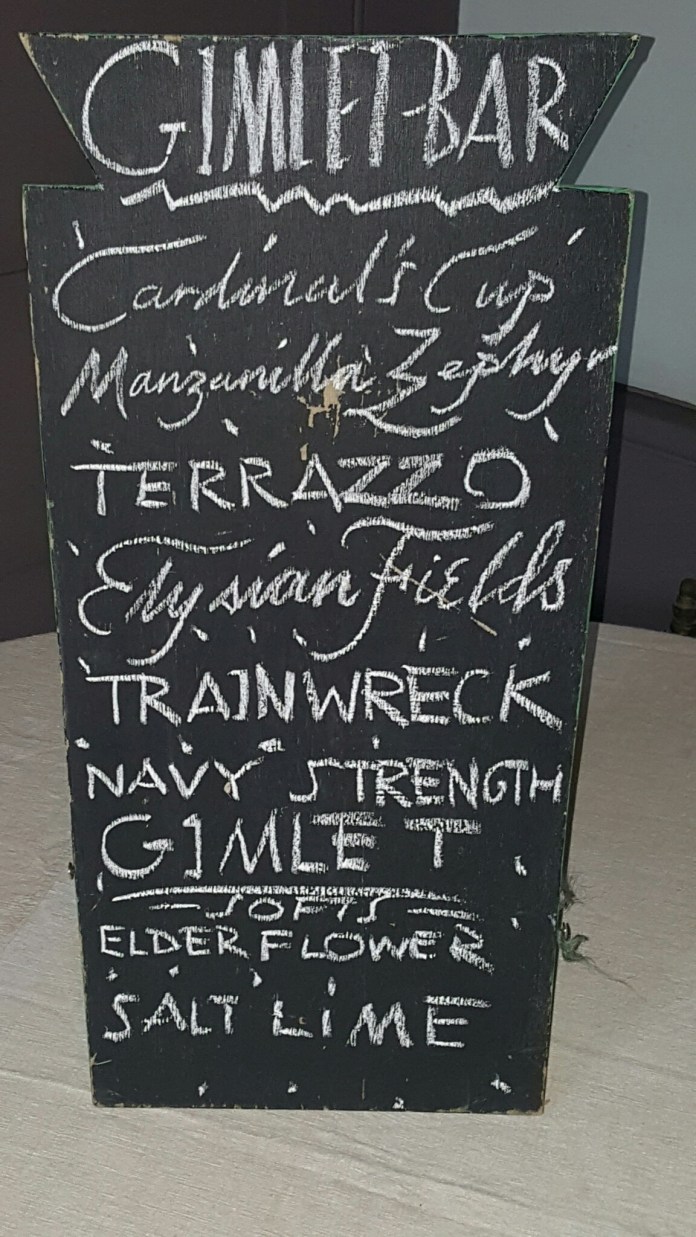 GIMLET BAR
Cardinal's Cup
Manzanilla Zephyr
TERRAZZO
Elysian Fields
TRAINWRECK
NAVY STRENGTH
GIMLET
SOFTS
ELDERFLOWER
SALT LIME